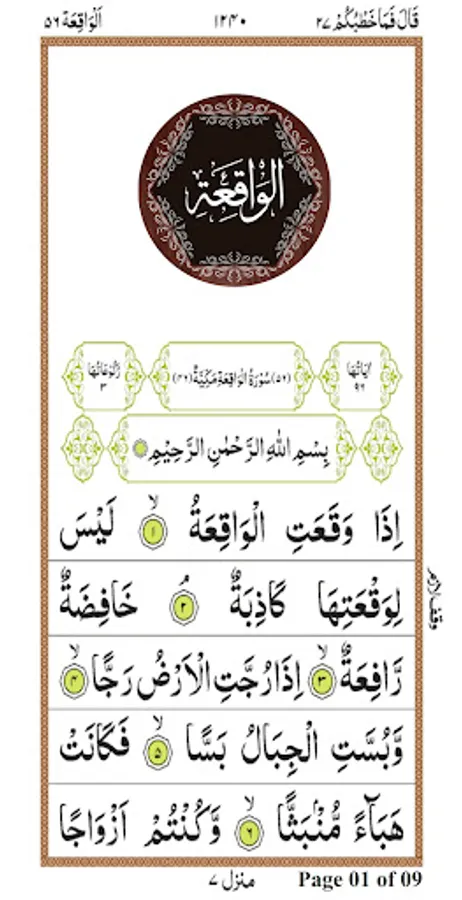 قَالَ فَمَا خَطْبُكُمْ ۲۷ ۱۲۴۰ اَلْوَاقِعَة ۵۶
الْوَاقِعَةِ
اٰيَاتُهَا ۹۶ (۵۶) سُوْرَةُ الْوَاقِعَةِ مَكِّيَّةٌ (۴۶) رُكُوْعَاتُهَا ۳
بِسْمِ اللّٰهِ الرَّحْمٰنِ الرَّحِيْمِ
اِذَا وَقَعَتِ الْوَاقِعَةُ ۙ۱ لَيْسَ
لِوَقْعَتِهَا كَاذِبَةٌ ۘ۲ خَافِضَةٌ
وقف لازم
رَّافِعَةٌ ۙ۳ اِذَا رُجَّتِ الْاَرْضُ رَجًّا ۙ۴
وَّبُسَّتِ الْجِبَالُ بَسًّا ۙ۵ فَكَانَتْ
هَبَآءً مُّنْۢبَثًّا ۙ۶ وَّكُنْتُمْ اَزْوَاجًا
منزل ۷ Page 01 of 09